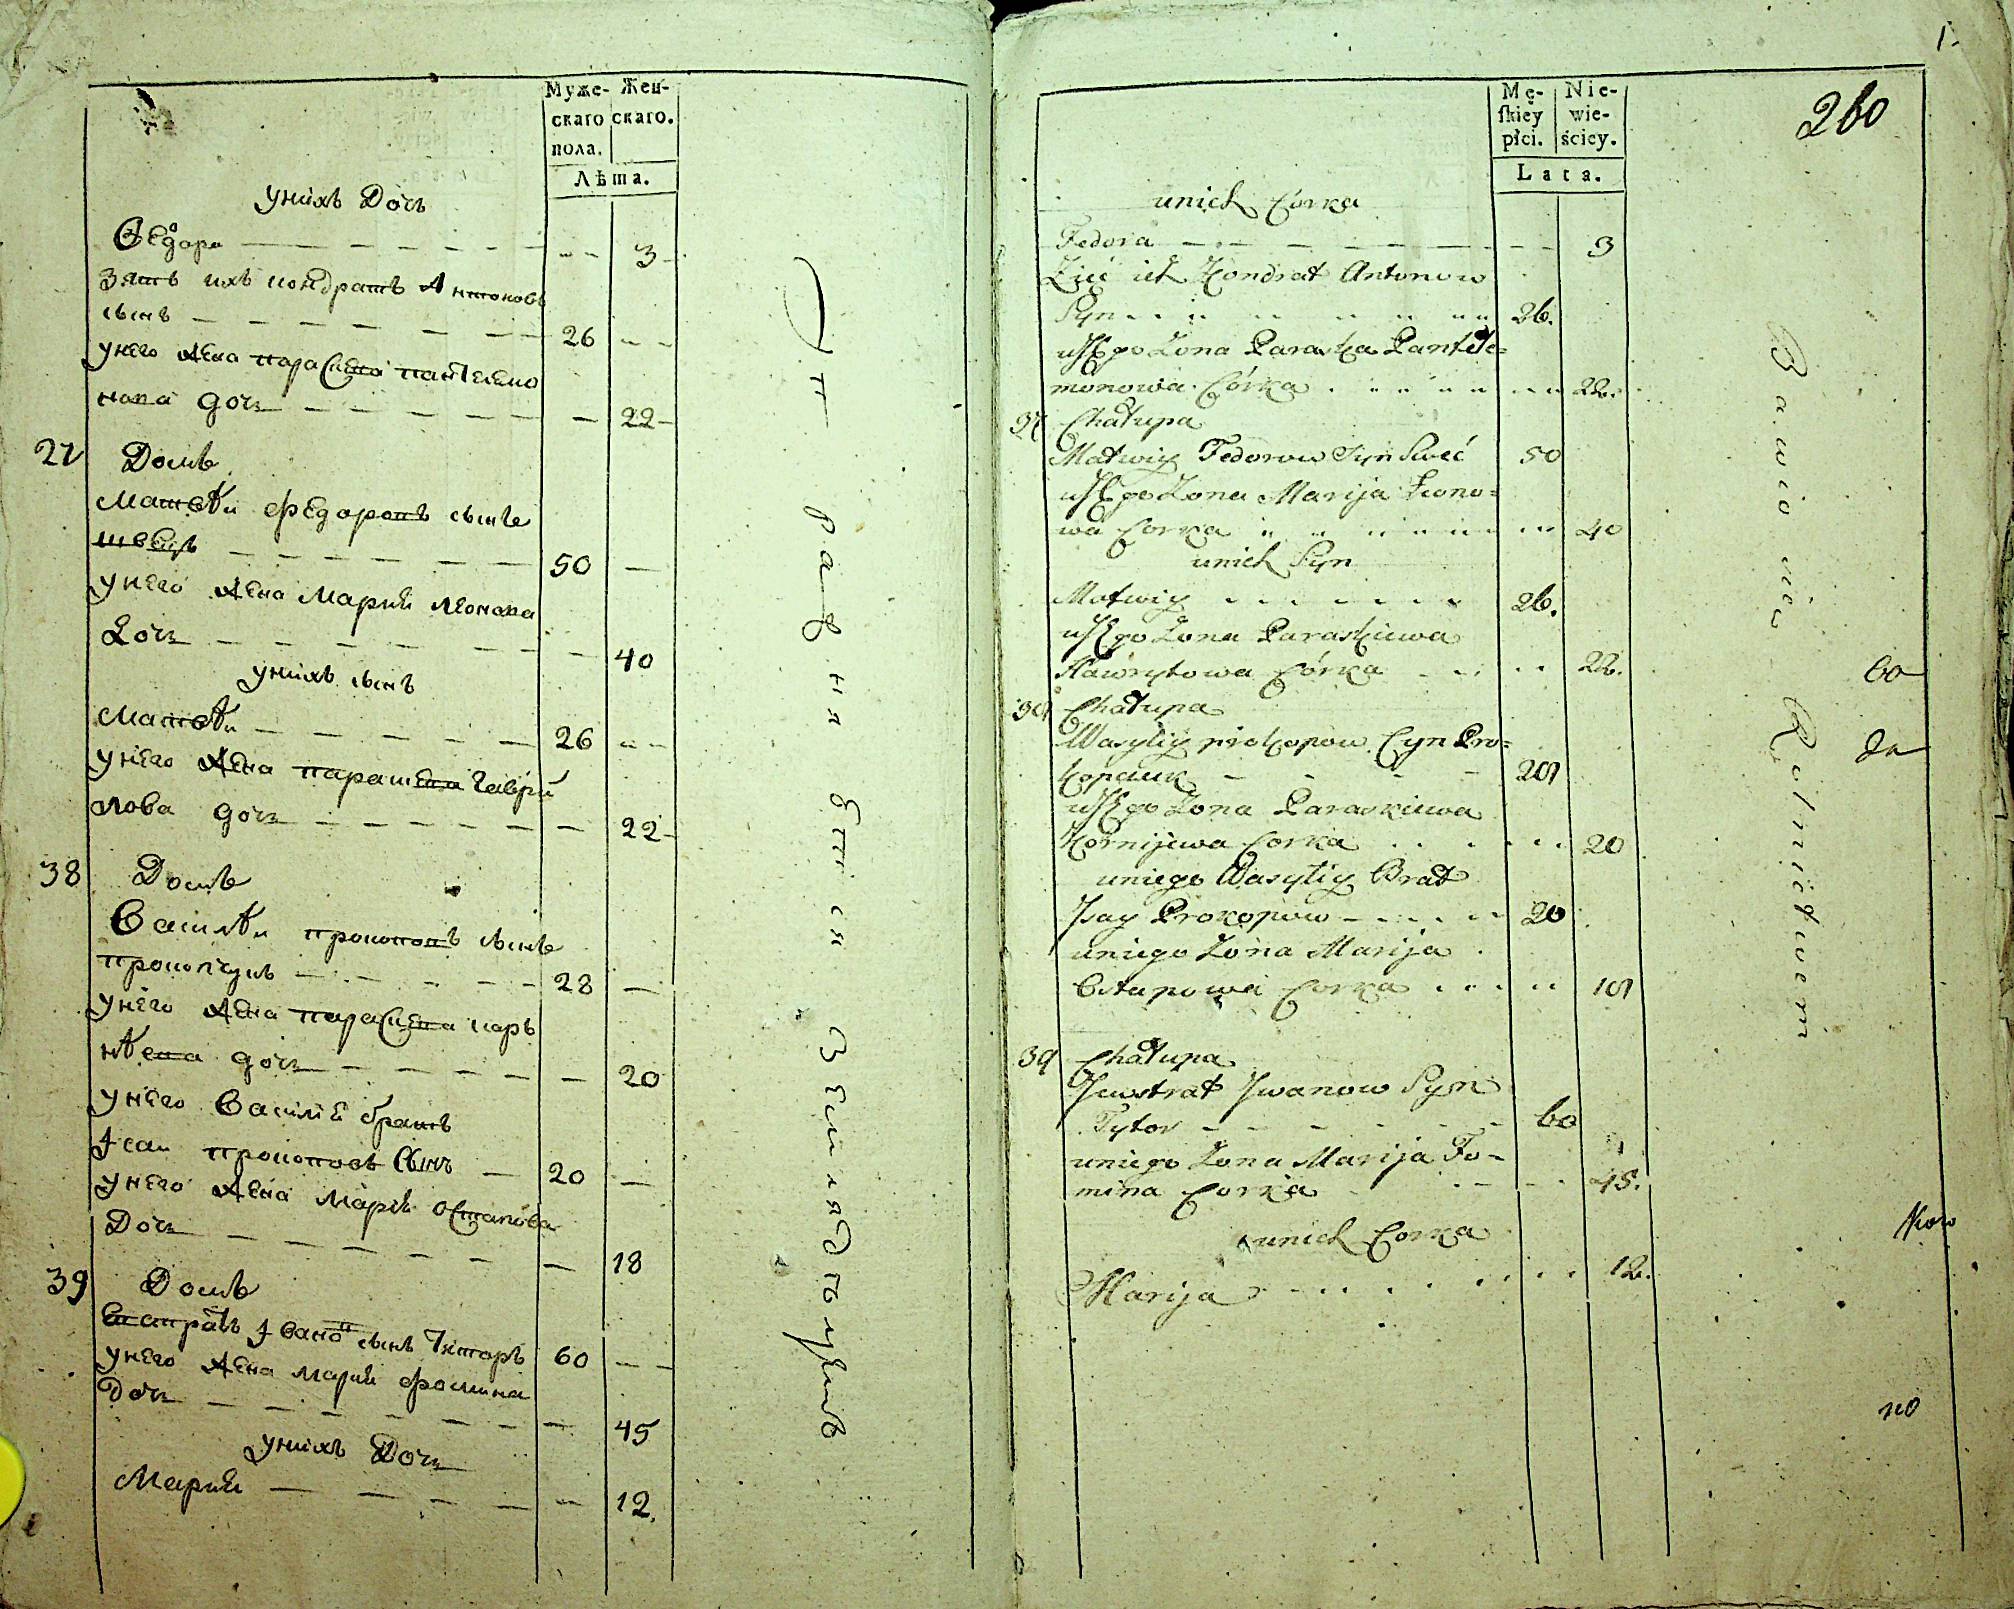 Муже-
скаго
пола.
Жен-
скаго.
Лѣта.
унихъ Дочь
Ѳедора 3
зять ихъ кондратъ Антоновъ
сынъ 26
унего жена параскева пантелемо
нова дочь 22
27 Домъ
Матвѣи федоровъ сынъ
швецъ 50
унего жена Мария леонова
Дочь 40
унихъ сынъ
Матвѣи 26
унего жена параскева гаври
лова дочь 22
38 Домъ
Василѣи прокоповъ сынъ
прокопчукъ 28
унего жена параскева кор
нѣева дочь 20
унего Василия братъ
Iсаи прокоповъ сынъ 20
унего жена Мария остапова
Дочь 18
39 Домъ
Евстратъ Iвановъ сынъ Титоръ 60
унего жена мария фомина
Дочь 45
унихъ Дочь
Мария 12.
Упражняется земледълиемъ
1.
260
Mę-
skiey
płci.
Nie-
wie-
ścicy.
Lata.
unich Córka
Fedora 3
Zięć ich Kondrat Antonow
Syn 26.
uJego Zona Paraska Pantele=
monowa Córka 22.
37 Chałupa
Matwiy Fedorow Syn Swec 50
uJego Zona Marija Leono=
wa Corka 40
unich Syn
Matwiy 26.
uJego Zona Paraskiewa
Hawryłowa Córka 22.
38 Chałupa
Wasyliy prokopow Syn Pro=
kopczuk 28
uJego Zona Paraskiewa
Kornijewa Corka 20
uniego Wasyliy Brat
Jsay Prokopow 20
uniego Zona Marija
Ostapowa Corka 18
39 Chałupa
Jewstrat Jwanow Syn
Tytor 60
uniego Zona Marija Fo=
mina Corka 45.
unich Corka
Marija 12.
Bawi się Rolnictwem